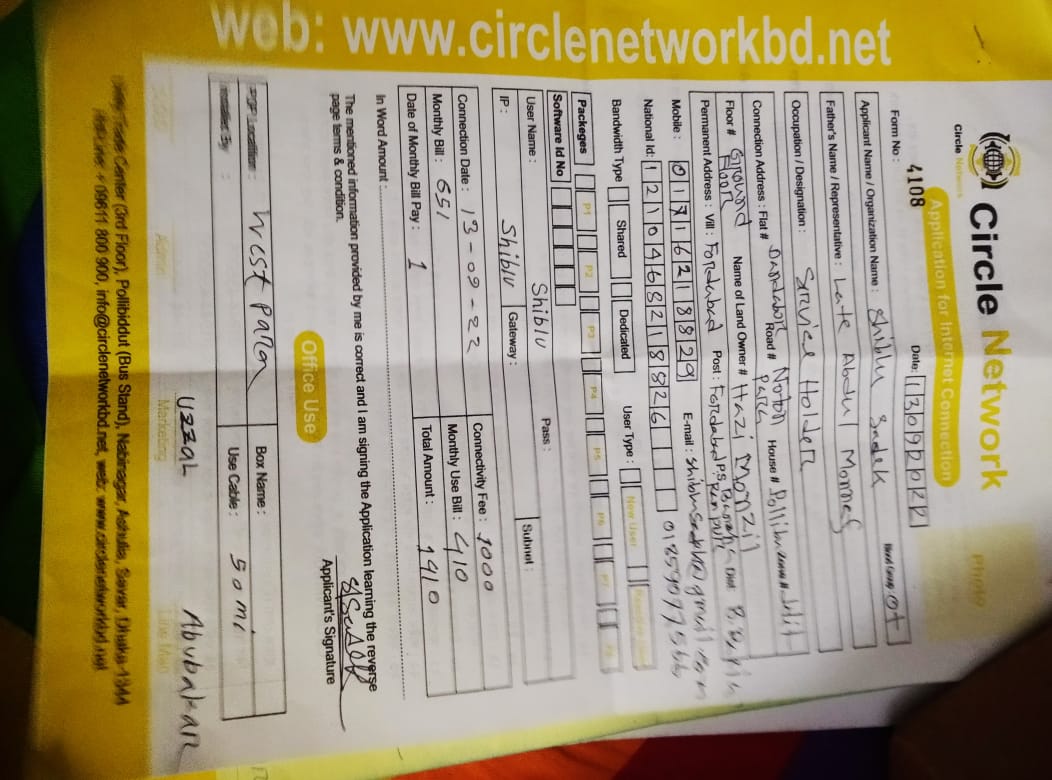 Circle Network
Circle Network
Application for Internet Connection
Photo
Form No : 4108
Date: 13092022
Applicant Name / Organization Name : Shiblu Sadek
Blood Group O+
Father's Name / Representative : Late Abdul Monnaf
Occupation / Designation : Service Holder
Connection Address : Flat # Dandabor Road # Noton Para House #
Floor # Ground Floor Name of Land Owner # Hazi Monzil
Permanent Address : Vill : Fordabad Post : Fordabad P.S Dist B.Baria
Mobile : 01716218829 E-mail :
National Id: 1210468218826 01859097566
Bandwidth Type Shared Dedicated User Type : New User
Packeges P1 P2 P3 P4 P5 P6 P7
Software Id No
User Name : Shiblu Pass :
IP : Shiblu Gateway : Subnet :
Connection Date : 13-09-22 Connectivity Fee : 1000
Monthly Bill : 651 Monthly Use Bill : 410
Date of Monthly Bill Pay : 1 Total Amount : 1410
In Word Amount
The mentioned information provided by me is correct and I am signing the Application learning the reverse
page terms & condition.
SSadek
Applicant's Signature
Office Use
West para Box Name :
Installed By : Use Cable : 50 mi
Uzzal Abubakar
Admin Marketing Line Man
Center (3rd Floor), Pollibiddut (Bus Stand), Nabinagar, Ashulia, Savar, Dhaka-1344
+ 09611 800 900, info@circlenetworkbd.net, web: www.circlenetworkbd.net
web: www.circlenetworkbd.net